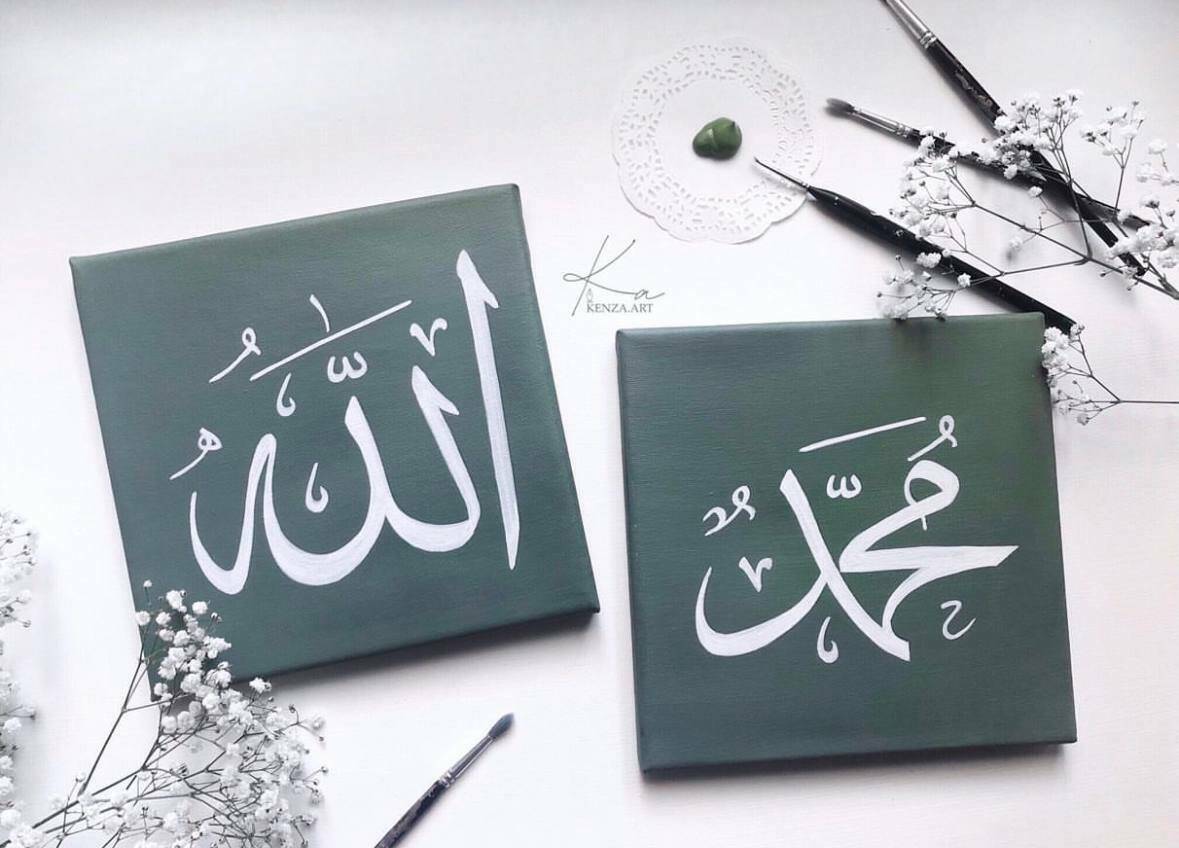 اللّٰهُ
Ka
KENZA.ART
مُحَمَّدٌ